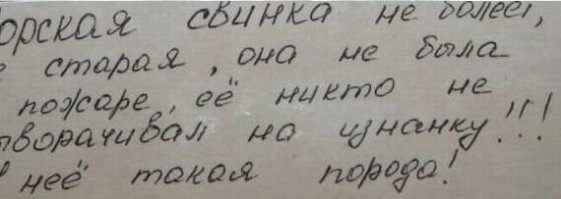 орская свинка не болеет,
е старая, она не была
пожаре, её никто не
ыворачивал на изнанку!!!
неё такая порода!